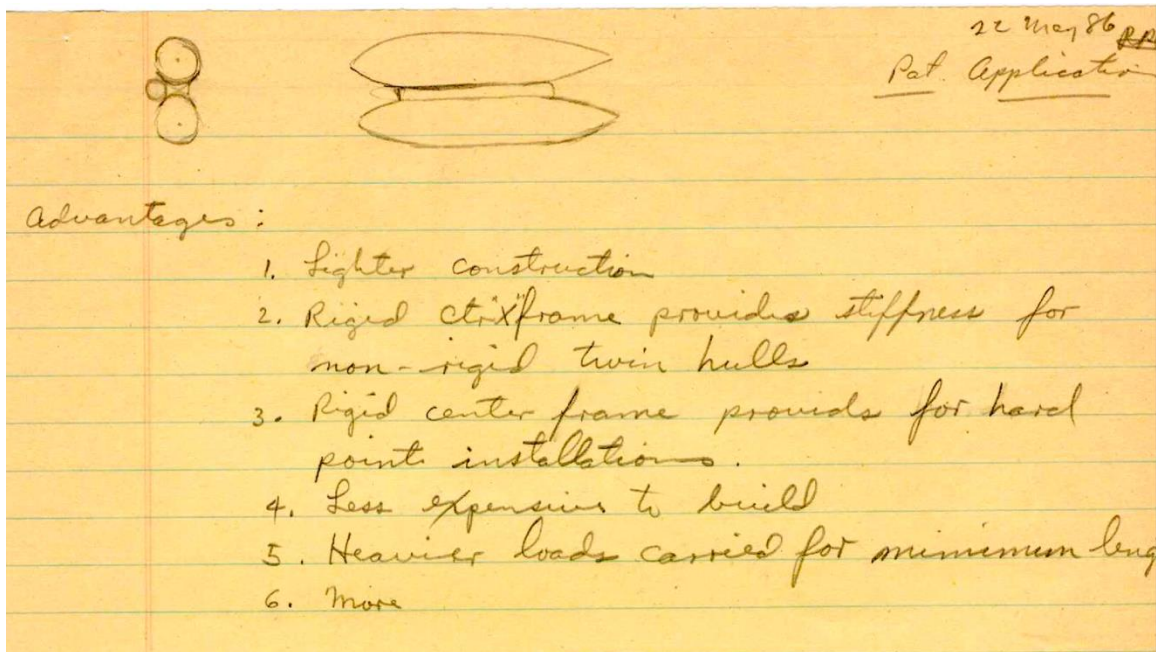 22 May 86
Pat. Application
Advantages:
1. Lighter construction
2. Rigid ctr "X" frame provides stiffness for
non-rigid twin hulls
3. Rigid center frame provids for hard
point installations.
4. Less expensive to build
5. Heavier loads carried for minimum leng
6. More